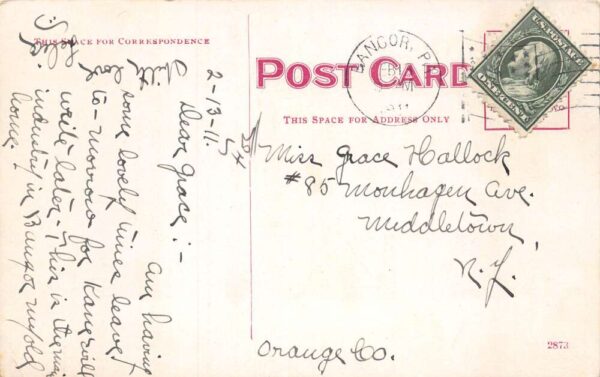 THIS SPACE FOR CORRESPONDENCE
2-13-11.
Dear Grace:-
Am having
some lovely times leave
to-morrow for
write later - This is the
industry in Bangor my old
home.
POST CARD
THIS SPACE FOR ADDRESS ONLY
BANGOR, PA.
U.S. POSTAGE
ONE CENT
Miss Grace Hallock
#85 Monhagen Ave.
Middletown,
N.Y.
Orange Co.
2873